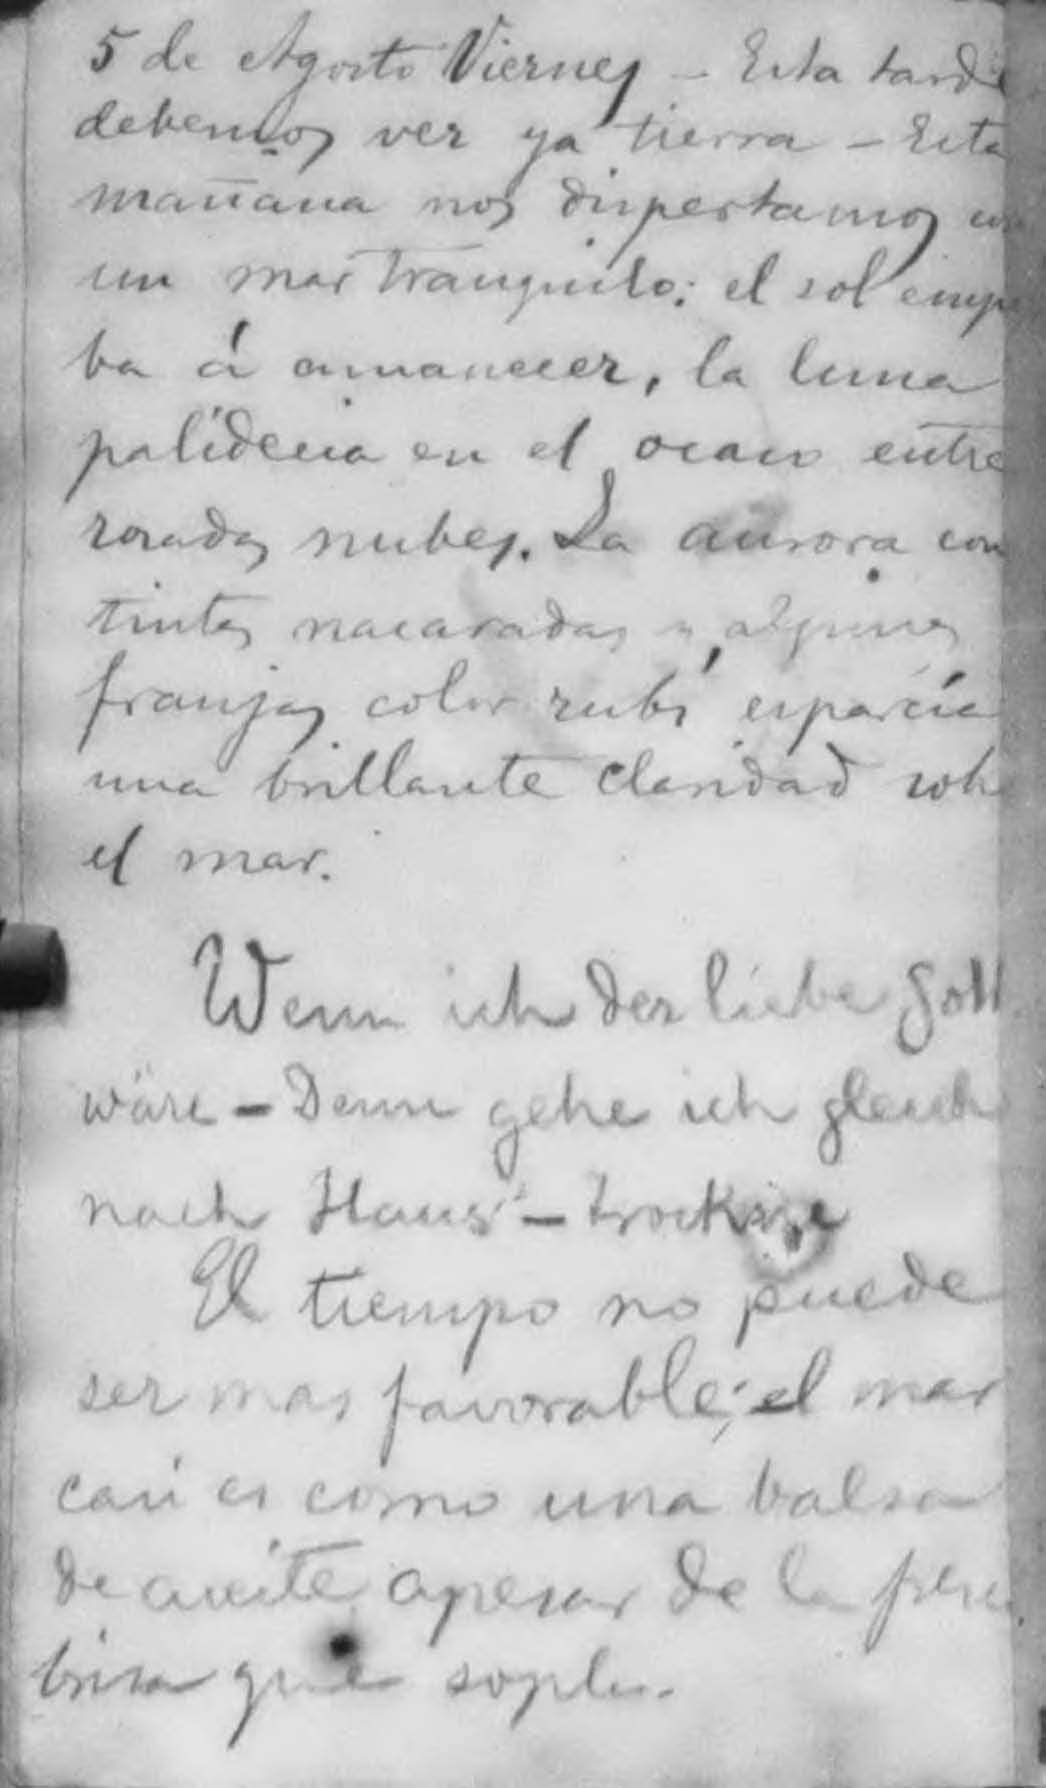 5 de Agosto Viernes – Esta tarde
debemos ver ya tierra – Esta
mañana nos dispertamos con
un mar tranquilo: el sol emp
ba á amanecer, la luna
palidecia en el ocaso entre
rosadas nubes. La aurora con
tintes nacaradas y algunas
franjas color rubí esparcía
una brillante claridad sob
el mar.
Wenn ich der liebe Gott
wäre – Denn gehe ich gleich
nach Haus –
El tiempo no puede
ser mas favorable; el mar
casi es como una balsa
de aceite apesar de la fres
brisa que sopla.